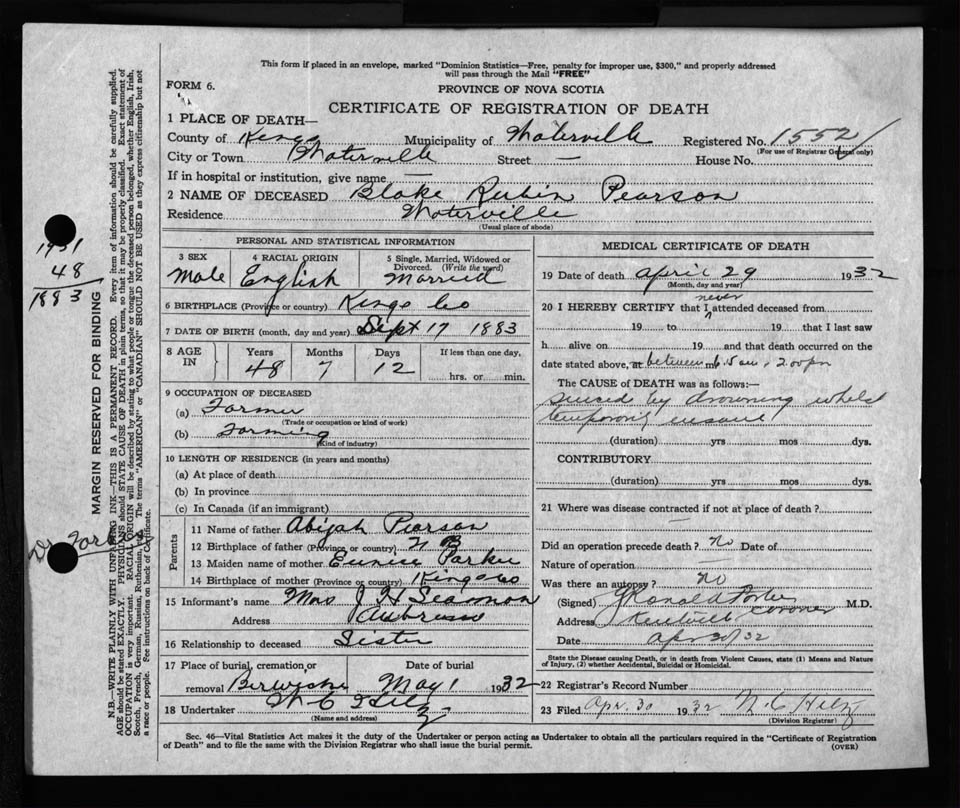 This form if placed in an envelope, marked "Dominion Statistics—Free, penalty for improper use, $300," and properly addressed
will pass through the Mail "FREE"
FORM 6.
PROVINCE OF NOVA SCOTIA
CERTIFICATE OF REGISTRATION OF DEATH
1 PLACE OF DEATH—
County of Kings Municipality of Waterville Registered No. 1552
(For use of Registrar General only)
City or Town Waterville Street — House No.
If in hospital or institution, give name —
2 NAME OF DECEASED Blake Rubin Pearson
Residence Waterville
(Usual place of abode)
PERSONAL AND STATISTICAL INFORMATION
3 SEX
Male
4 RACIAL ORIGIN
English
5 Single, Married, Widowed or
Divorced. (Write the word)
Married
6 BIRTHPLACE (Province or country) Kings Co
7 DATE OF BIRTH (month, day and year) Sept 17 1883
8 AGE IN
Years 48
Months 7
Days 12
If less than one day,
hrs. or min.
9 OCCUPATION OF DECEASED
(a) Farmer
(Trade or occupation or kind of work)
(b) Farming
(Kind of industry)
10 LENGTH OF RESIDENCE (in years and months)
(a) At place of death
(b) In province
(c) In Canada (if an immigrant)
Parents
11 Name of father Abijah Pearson
12 Birthplace of father (Province or country) N B
13 Maiden name of mother Eunice Parker
14 Birthplace of mother (Province or country) Kings Co
15 Informant's name Mrs J H Seamon
Address
16 Relationship to deceased Sister
17 Place of burial, cremation or
removal Berwick
Date of burial
May 1 1932
18 Undertaker W C Hiltz
(Name and address)
MEDICAL CERTIFICATE OF DEATH
19 Date of death April 29 1932
(Month, day and year)
never
20 I HEREBY CERTIFY that I attended deceased from
19 to 19 that I last saw
h alive on 19 and that death occurred on the
date stated above, at between m. 2.00 pm
The CAUSE OF DEATH was as follows:—
Suicide by drowning whilst
temporarily insane
(duration) yrs mos dys.
CONTRIBUTORY
(duration) yrs mos dys.
21 Where was disease contracted if not at place of death?
—
Did an operation precede death? no Date of
Nature of operation —
Was there an autopsy? no
(Signed) coroner M.D.
Address Kentville
Date Apr 30/32
State the Disease causing Death, or in death from Violent Causes, state (1) Means and Nature
of Injury, (2) whether Accidental, Suicidal or Homicidal.
22 Registrar's Record Number
23 Filed Apr. 30 1932 W. C Hiltz
(Division Registrar)
Sec. 46—Vital Statistics Act makes it the duty of the Undertaker or person acting as Undertaker to obtain all the particulars required in the "Certificate of Registration
of Death" and to file the same with the Division Registrar who shall issue the burial permit.
(OVER)
1931
48
1883
MARGIN RESERVED FOR BINDING
N.B.—WRITE PLAINLY WITH UNFADING INK—THIS IS A PERMANENT RECORD. Every item of information should be carefully supplied.
AGE should be stated EXACTLY. PHYSICIANS should STATE CAUSE OF DEATH in plain terms, so that it may be properly classified. Exact statement of
OCCUPATION is very important. RACIAL ORIGIN will be described by stating to what people or tongue the deceased person belonged, whether English, Irish,
Scotch, French, German, Russian, Ruthenian, etc. The terms "AMERICAN" or "CANADIAN" SHOULD NOT BE USED as they express citizenship but not
a race or people. Fee instructions on back of Certificate.